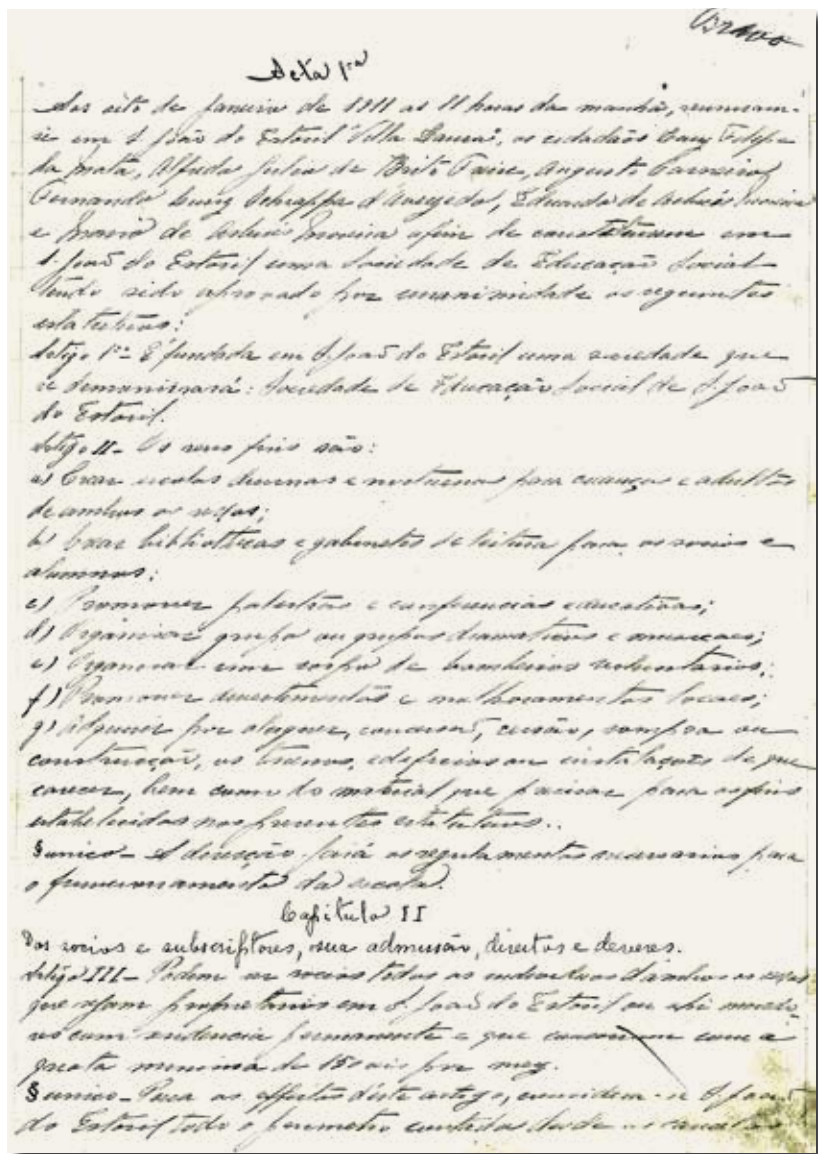 Bravo
Acta 1ª
Aos oito de Janeiro de 1911 as 11 horas da manhã, reuniram-
se em S. João do Estoril "Villa Laura", os cidadãos Filipe
da Mata, Alfredo Julio de Brito Freire, Augusto Carneiro,
Fernando d'Azevedo, Eduardo de
e Mario de afim de constituirem em
S. João do Estoril uma Sociedade de Educação Social
tendo sido aprovado por unanimidade os seguintes
estatutos:
Artigo 1º - É fundada em S. João do Estoril uma sociedade que
se denominará: Sociedade de Educação Social de S. João
do Estoril.
Artigo II - Os seus fins são:
a) Crear escolas diurnas e nocturnas para creanças e adultos
de ambos os sexos;
b) Crear bibliothecas e gabinetes de leitura para os socios e
alumnos;
c) Promover palestras e conferencias educativas;
d) Organisar grupo ou grupos dramaticos e musicaes;
e) Organisar um corpo de bombeiros voluntarios;
f) Promover divertimentos e melhoramentos locaes;
g) Adquirir por aluguer, concessão, cessão, compra ou
construcção, os terrenos, edificios ou installações de que
carecer, bem como do material que precisar para os fins
estabelecidos nos presentes estatutos..
§ unico - A direcção fará os regulamentos necessarios para
o funccionamento da escola.
Capitulo II
Dos socios e subscriptores, sua admissão, direitos e deveres.
Artigo III - Podem ser socios todos os individuos d'ambos os sexos
que sejam proprietarios em S. João do Estoril ou ahi
permanente e que concorram com a
quota minima de 15 reis por mez.
§ unico - Para os effeitos d'este artigo, considera-se S. João
do Estoril todo o perimetro desde